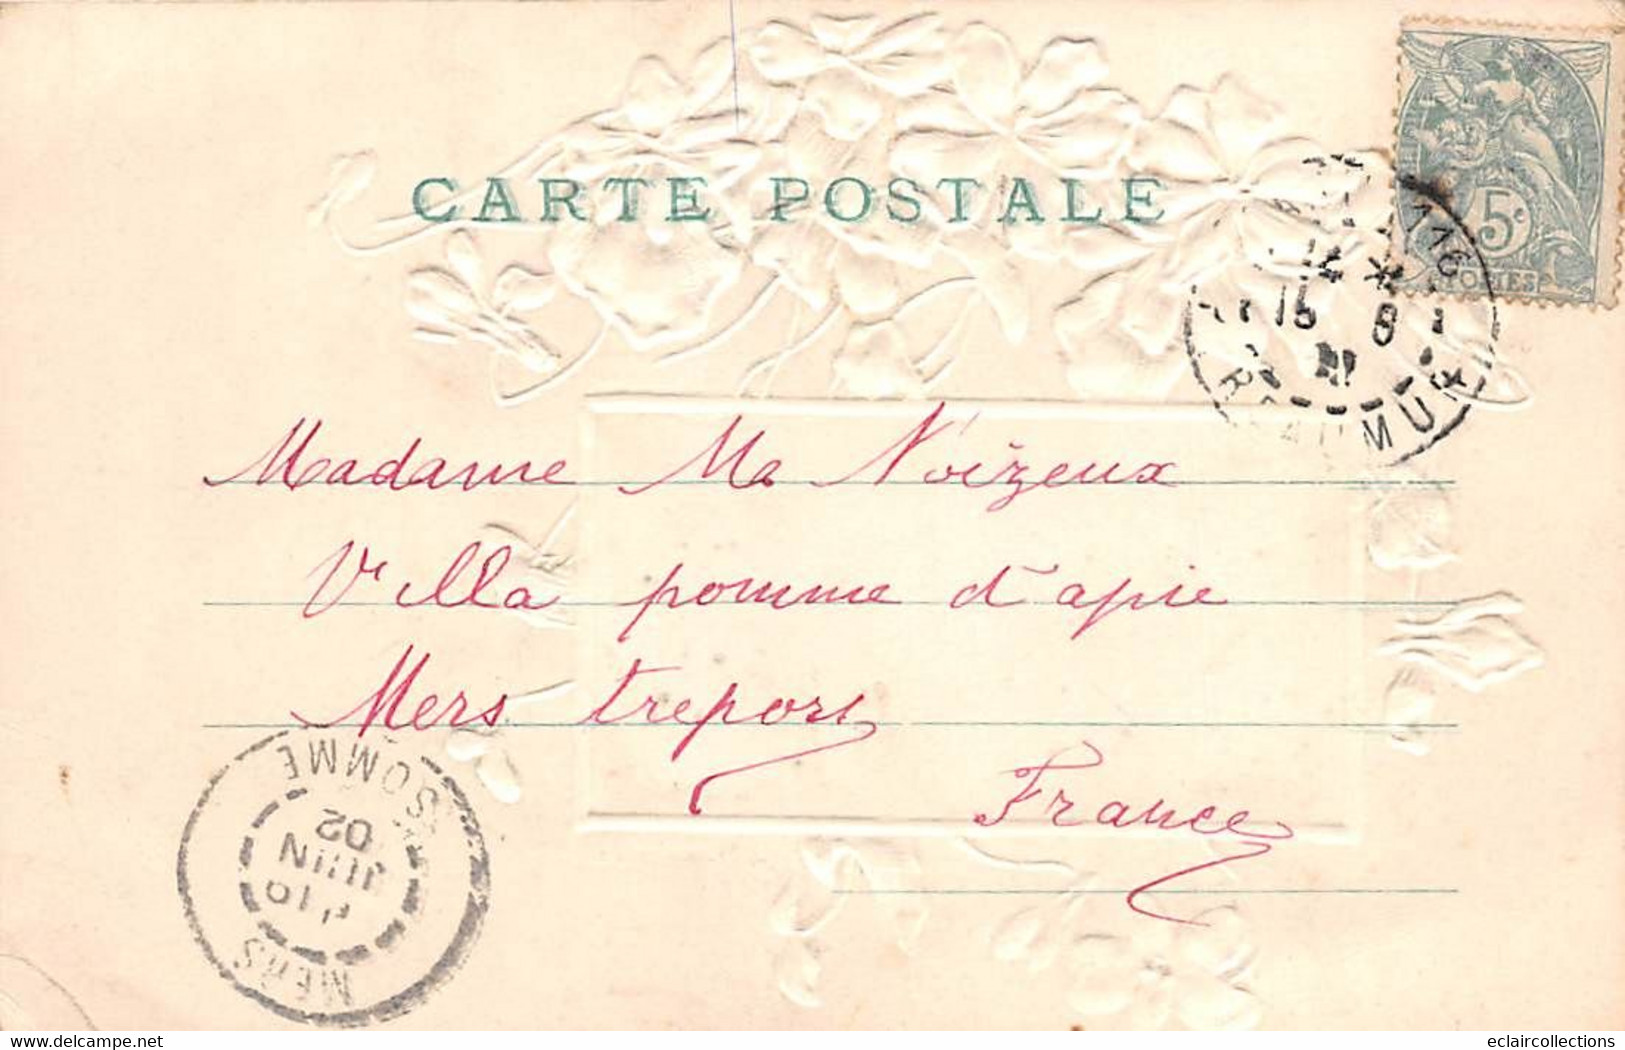 CARTE POSTALE
5c
POSTES
116
14
15 6
REAUMUR
Madame Ma Noizeux
Villa pomme d'apie
Mers treport
France
SOMME
02
JUIN
MERS
www.delcampe.net
eclaircollections